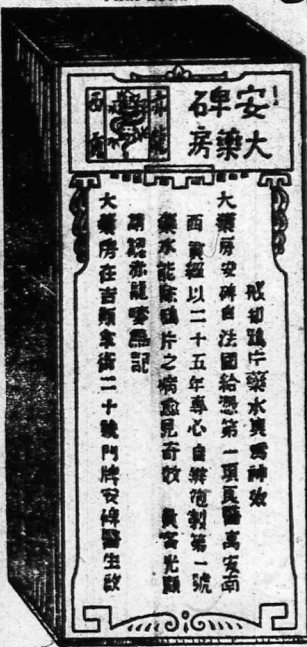 安卑石
大藥房
赤龍
西貢
戒却鴉片藥水異為神效
大藥房安碑自法國給憑第一項良醫寓安南
西貢經以二十五年專心自辦泡製第一號
藥水能除鴉片之病愈見奇效 貴客光顧
請認赤龍嘜為記
大藥房在吉類拿街二十號門牌安碑醫生啟